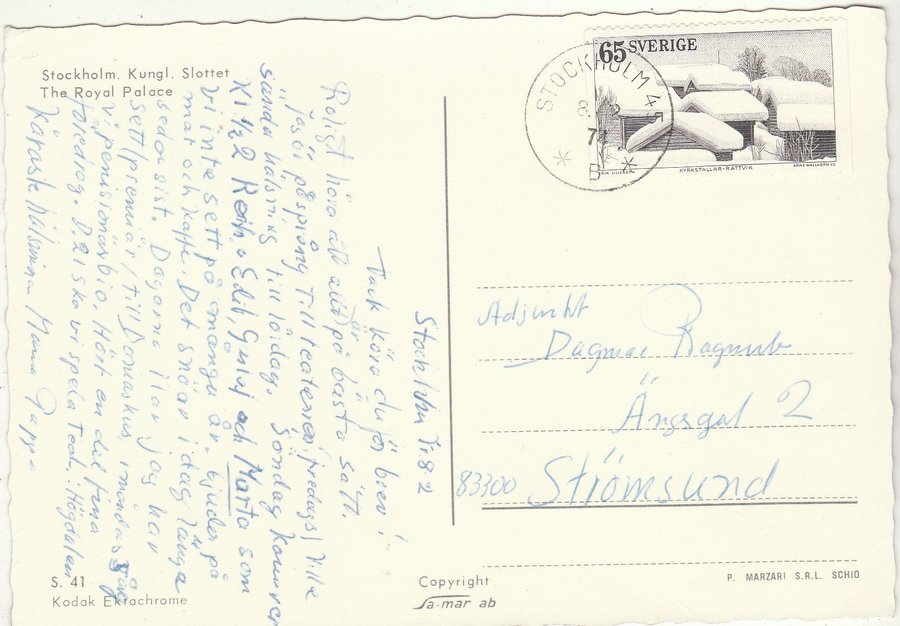 Stockholm. Kungl. Slottet
The Royal Palace
65 SVERIGE
STOCKHOLM 4
B
KYRKSTALLAR-RÄTTVIK
ARNE WALLHORN SC
Tack kära du för brev!
Roligt höra att allt är på bästa sätt.
Jag är på språng till teatern fredag Ville
sända hälsning till lördag. Söndag kommer
Kl ½ 2 Edit, och Marta som
vi inte sett på många år, bjuder på
mat och kaffe. Det snöar i dag länga
sedan sist. Dagarna ilar jag har
sett premiär till Damaskus, måndag såg
vi pensionärbio. Hört en del fina
föredrag. D. 21 ska vi spela Teat. Högdalen
Käraste hälsningar Mamma Pappa
Adjunkt
Dagmar
Ängsgat 2
83300 Strömsund
S. 41
Kodak Ektachrome
Copyright
Sa-mar ab
P. MARZARI S.R.L. SCHIO